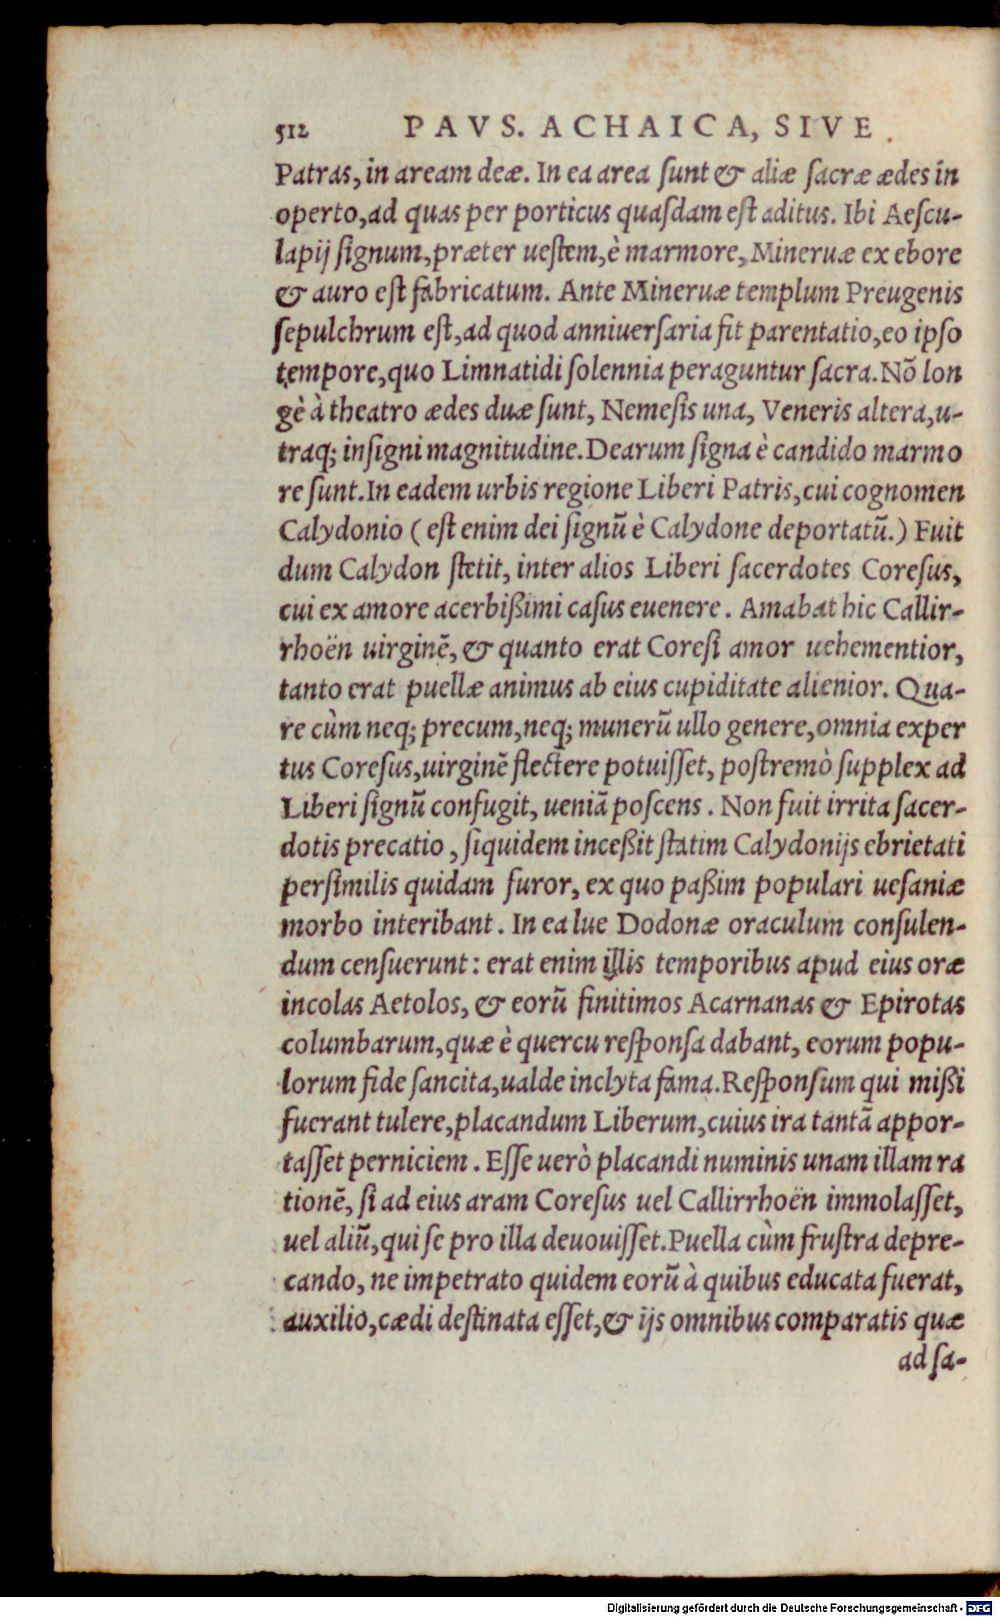 512 PAVS. ACHAICA, SIVE
Patras, in aream deæ. In ea area sunt & aliæ sacræ ædes in
operto, ad quas per porticus quasdam est aditus. Ibi Aescu-
lapij signum, præter uestem, è marmore, Mineruæ ex ebore
& auro est fabricatum. Ante Mineruæ templum Preugenis
sepulchrum est, ad quod anniuersaria fit parentatio, eo ipso
tempore, quo Limnatidi solennia peraguntur sacra. Nō lon
gè à theatro ædes duæ sunt, Nemesis una, Veneris altera, u-
traq; insigni magnitudine. Dearum signa è candido marmo
re sunt. In eadem urbis regione Liberi Patris, cui cognomen
Calydonio ( est enim dei signū è Calydone deportatū.) Fuit
dum Calydon stetit, inter alios Liberi sacerdotes Coresus,
cui ex amore acerbißimi casus euenere. Amabat hic Callir-
rhoën uirginē, & quanto erat Coresi amor uehementior,
tanto erat puellæ animus ab eius cupiditate alienior. Qua-
re cùm neq; precum, neq; munerū ullo genere, omnia exper
tus Coresus, uirginē flectere potuisset, postremò supplex ad
Liberi signū confugit, ueniā poscens. Non fuit irrita sacer-
dotis precatio, siquidem inceßit statim Calydonijs ebrietati
persimilis quidam furor, ex quo paßim populari uesaniæ
morbo interibant. In ea lue Dodonæ oraculum consulen-
dum censuerunt: erat enim illis temporibus apud eius oræ
incolas Aetolos, & eorū finitimos Acarnanas & Epirotas
columbarum, quæ è quercu responsa dabant, eorum popu-
lorum fide sancita, ualde inclyta fama. Responsum qui mißi
fuerant tulere, placandum Liberum, cuius ira tantā appor-
tasset perniciem. Esse uerò placandi numinis unam illam ra
tionē, si ad eius aram Coresus uel Callirrhoën immolasset,
uel aliū, qui se pro illa deuouisset. Puella cùm frustra depre-
cando, ne impetrato quidem eorū à quibus educata fuerat,
auxilio, cædi destinata esset, & ijs omnibus comparatis quæ
ad sa-
Digitalisierung gefördert durch die Deutsche Forschungsgemeinschaft - DFG